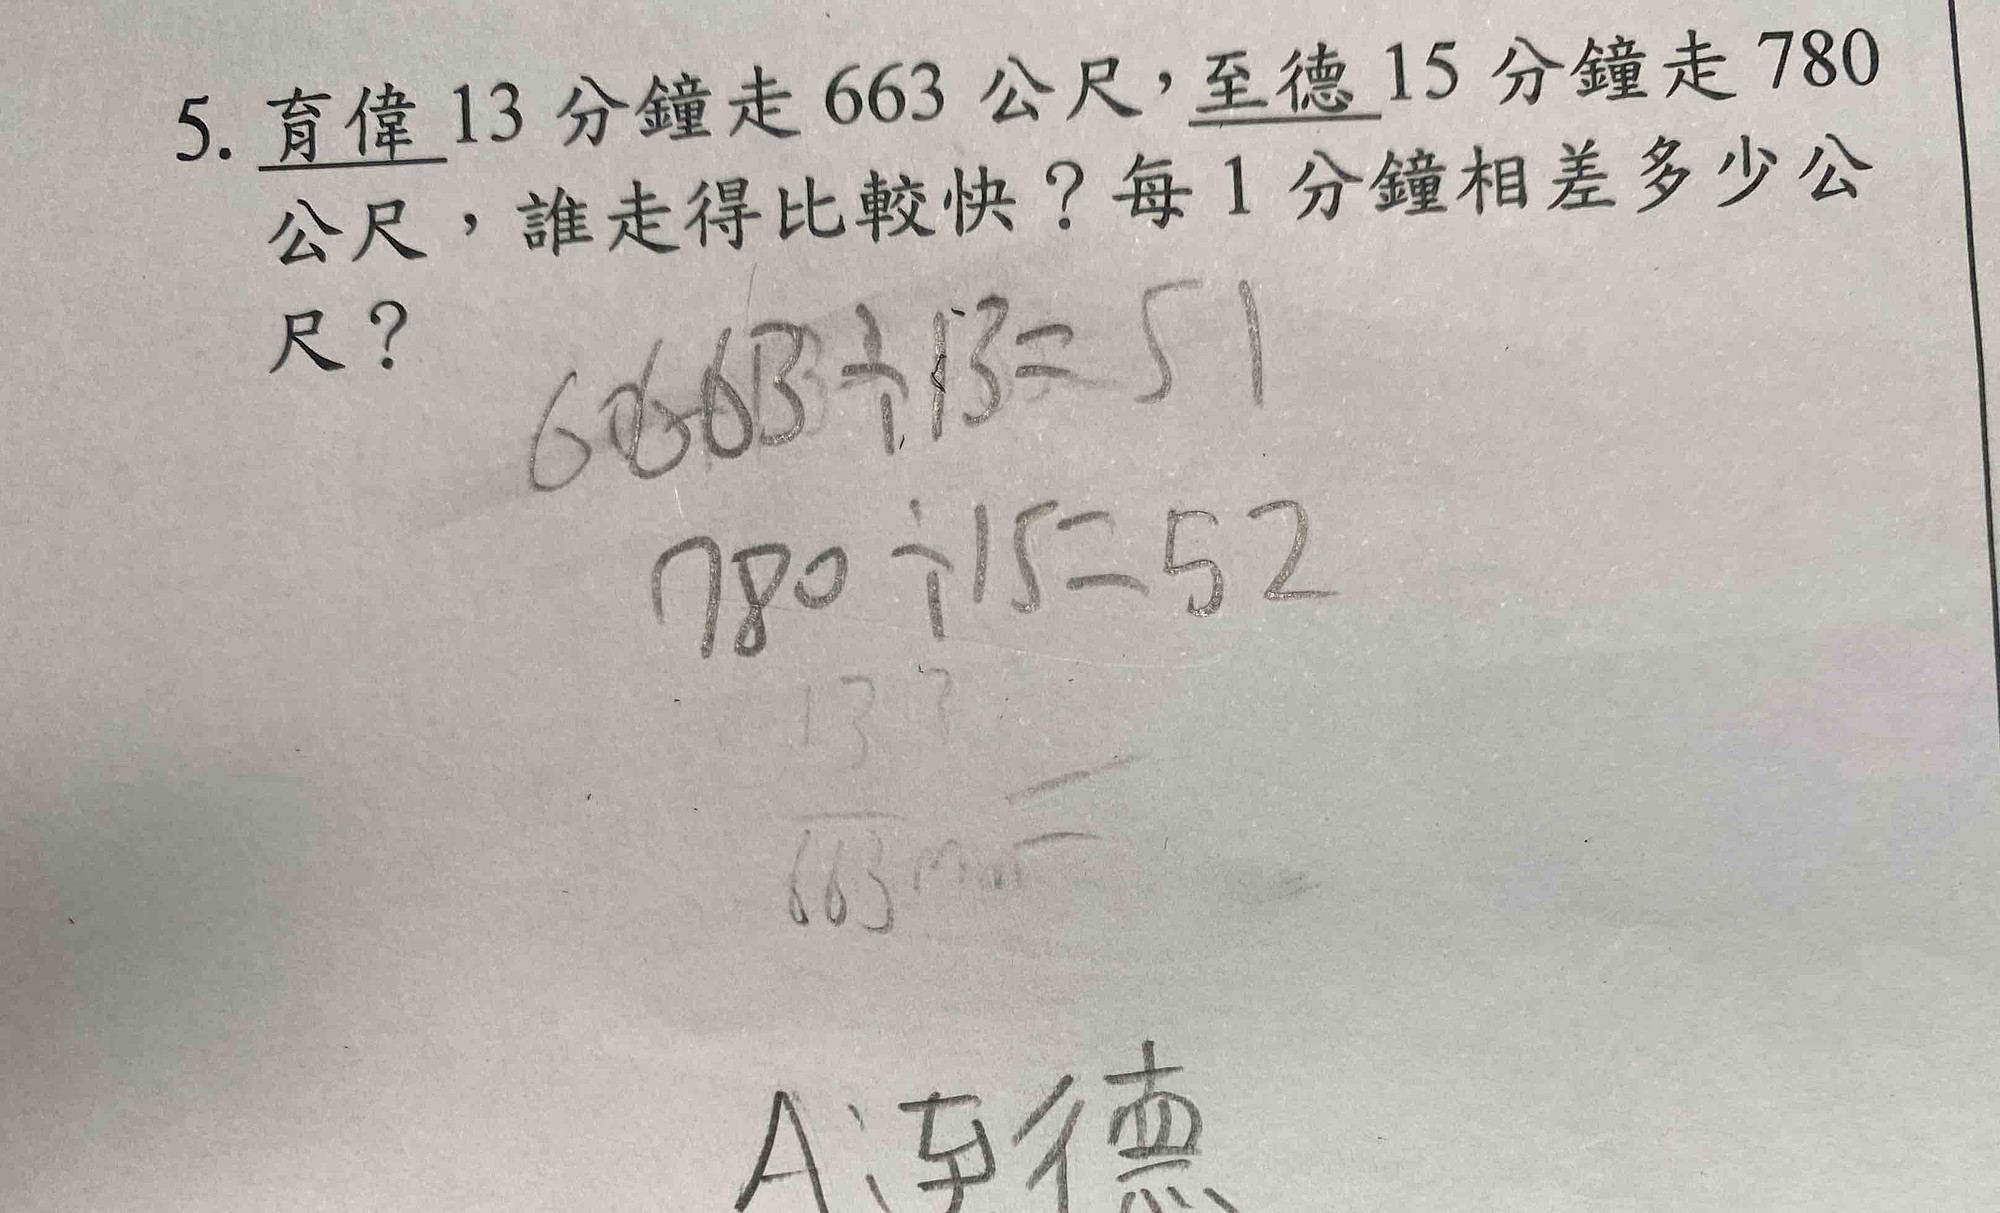 5. 育偉 13 分鐘走 663 公尺，至德 15 分鐘走 780
公尺，誰走得比較快？每 1 分鐘相差多少公
尺？
663÷13=51
780÷15=52
13
663
A:至德